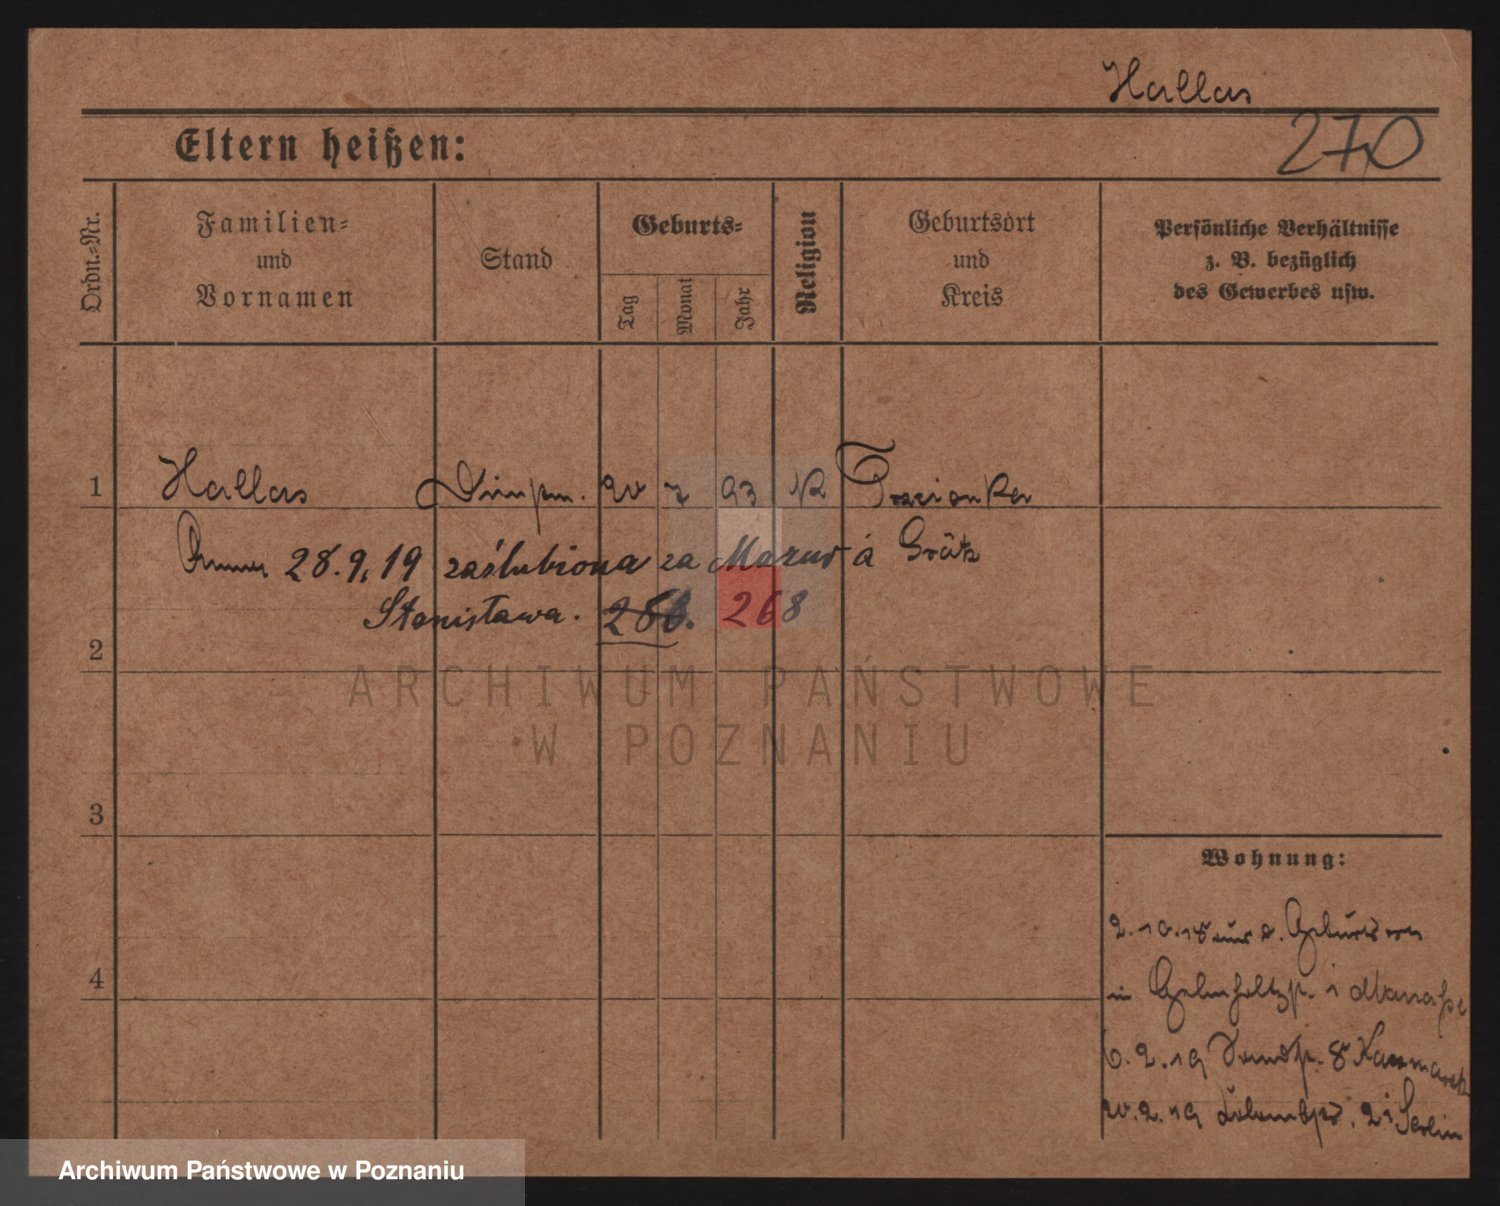 Hallas
270
Eltern heißen:
Ordn.=Nr.
Familien=
und
Vornamen
Stand
Geburts=
Tag
Monat
Jahr
Religion
Geburtsort
und
Kreis
Persönliche Verhältnisse
z. B. bezüglich
des Gewerbes usw.
1 Hallas 20 7 93 K
28.9.19 zaślubiona za Mazur á Grätz
Stanisława. 268
2
ARCHIWUM PAŃSTWOWE
W POZNANIU
3
Wohnung:
4
2.10.18 aus d.
in
6.2.19 8 Kaczmarek
20.2.19
Archiwum Państwowe w Poznaniu